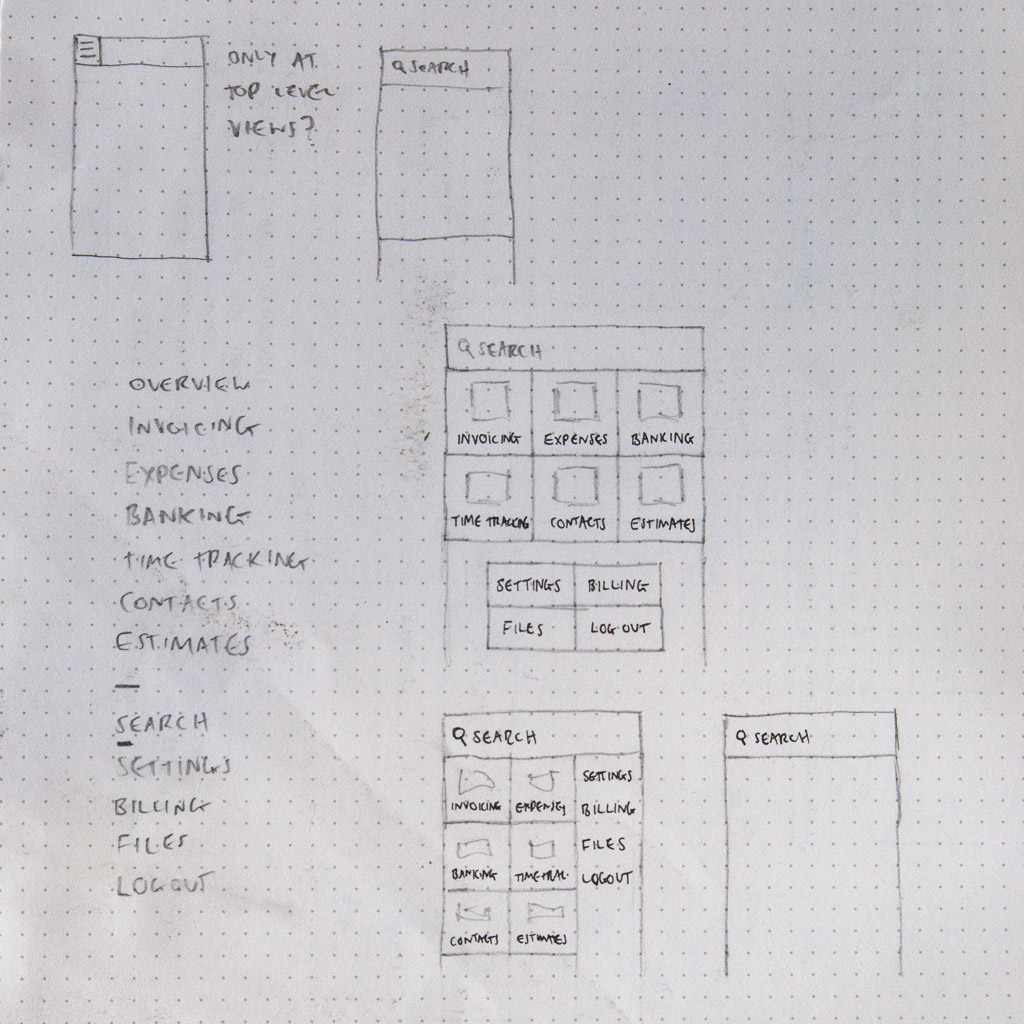 ONLY AT
TOP LEVEL
VIEWS?
SEARCH
OVERVIEW
INVOICING
EXPENSES
BANKING
TIME TRACKING
CONTACTS
ESTIMATES
—
SEARCH
SETTINGS
BILLING
FILES
LOGOUT
SEARCH
INVOICING EXPENSES BANKING
TIME TRACKING CONTACTS ESTIMATES
SETTINGS BILLING
FILES LOG OUT
SEARCH
INVOICING EXPENSES
BANKING TIME TRAC.
CONTACTS ESTIMATES
SETTINGS
BILLING
FILES
LOGOUT
SEARCH